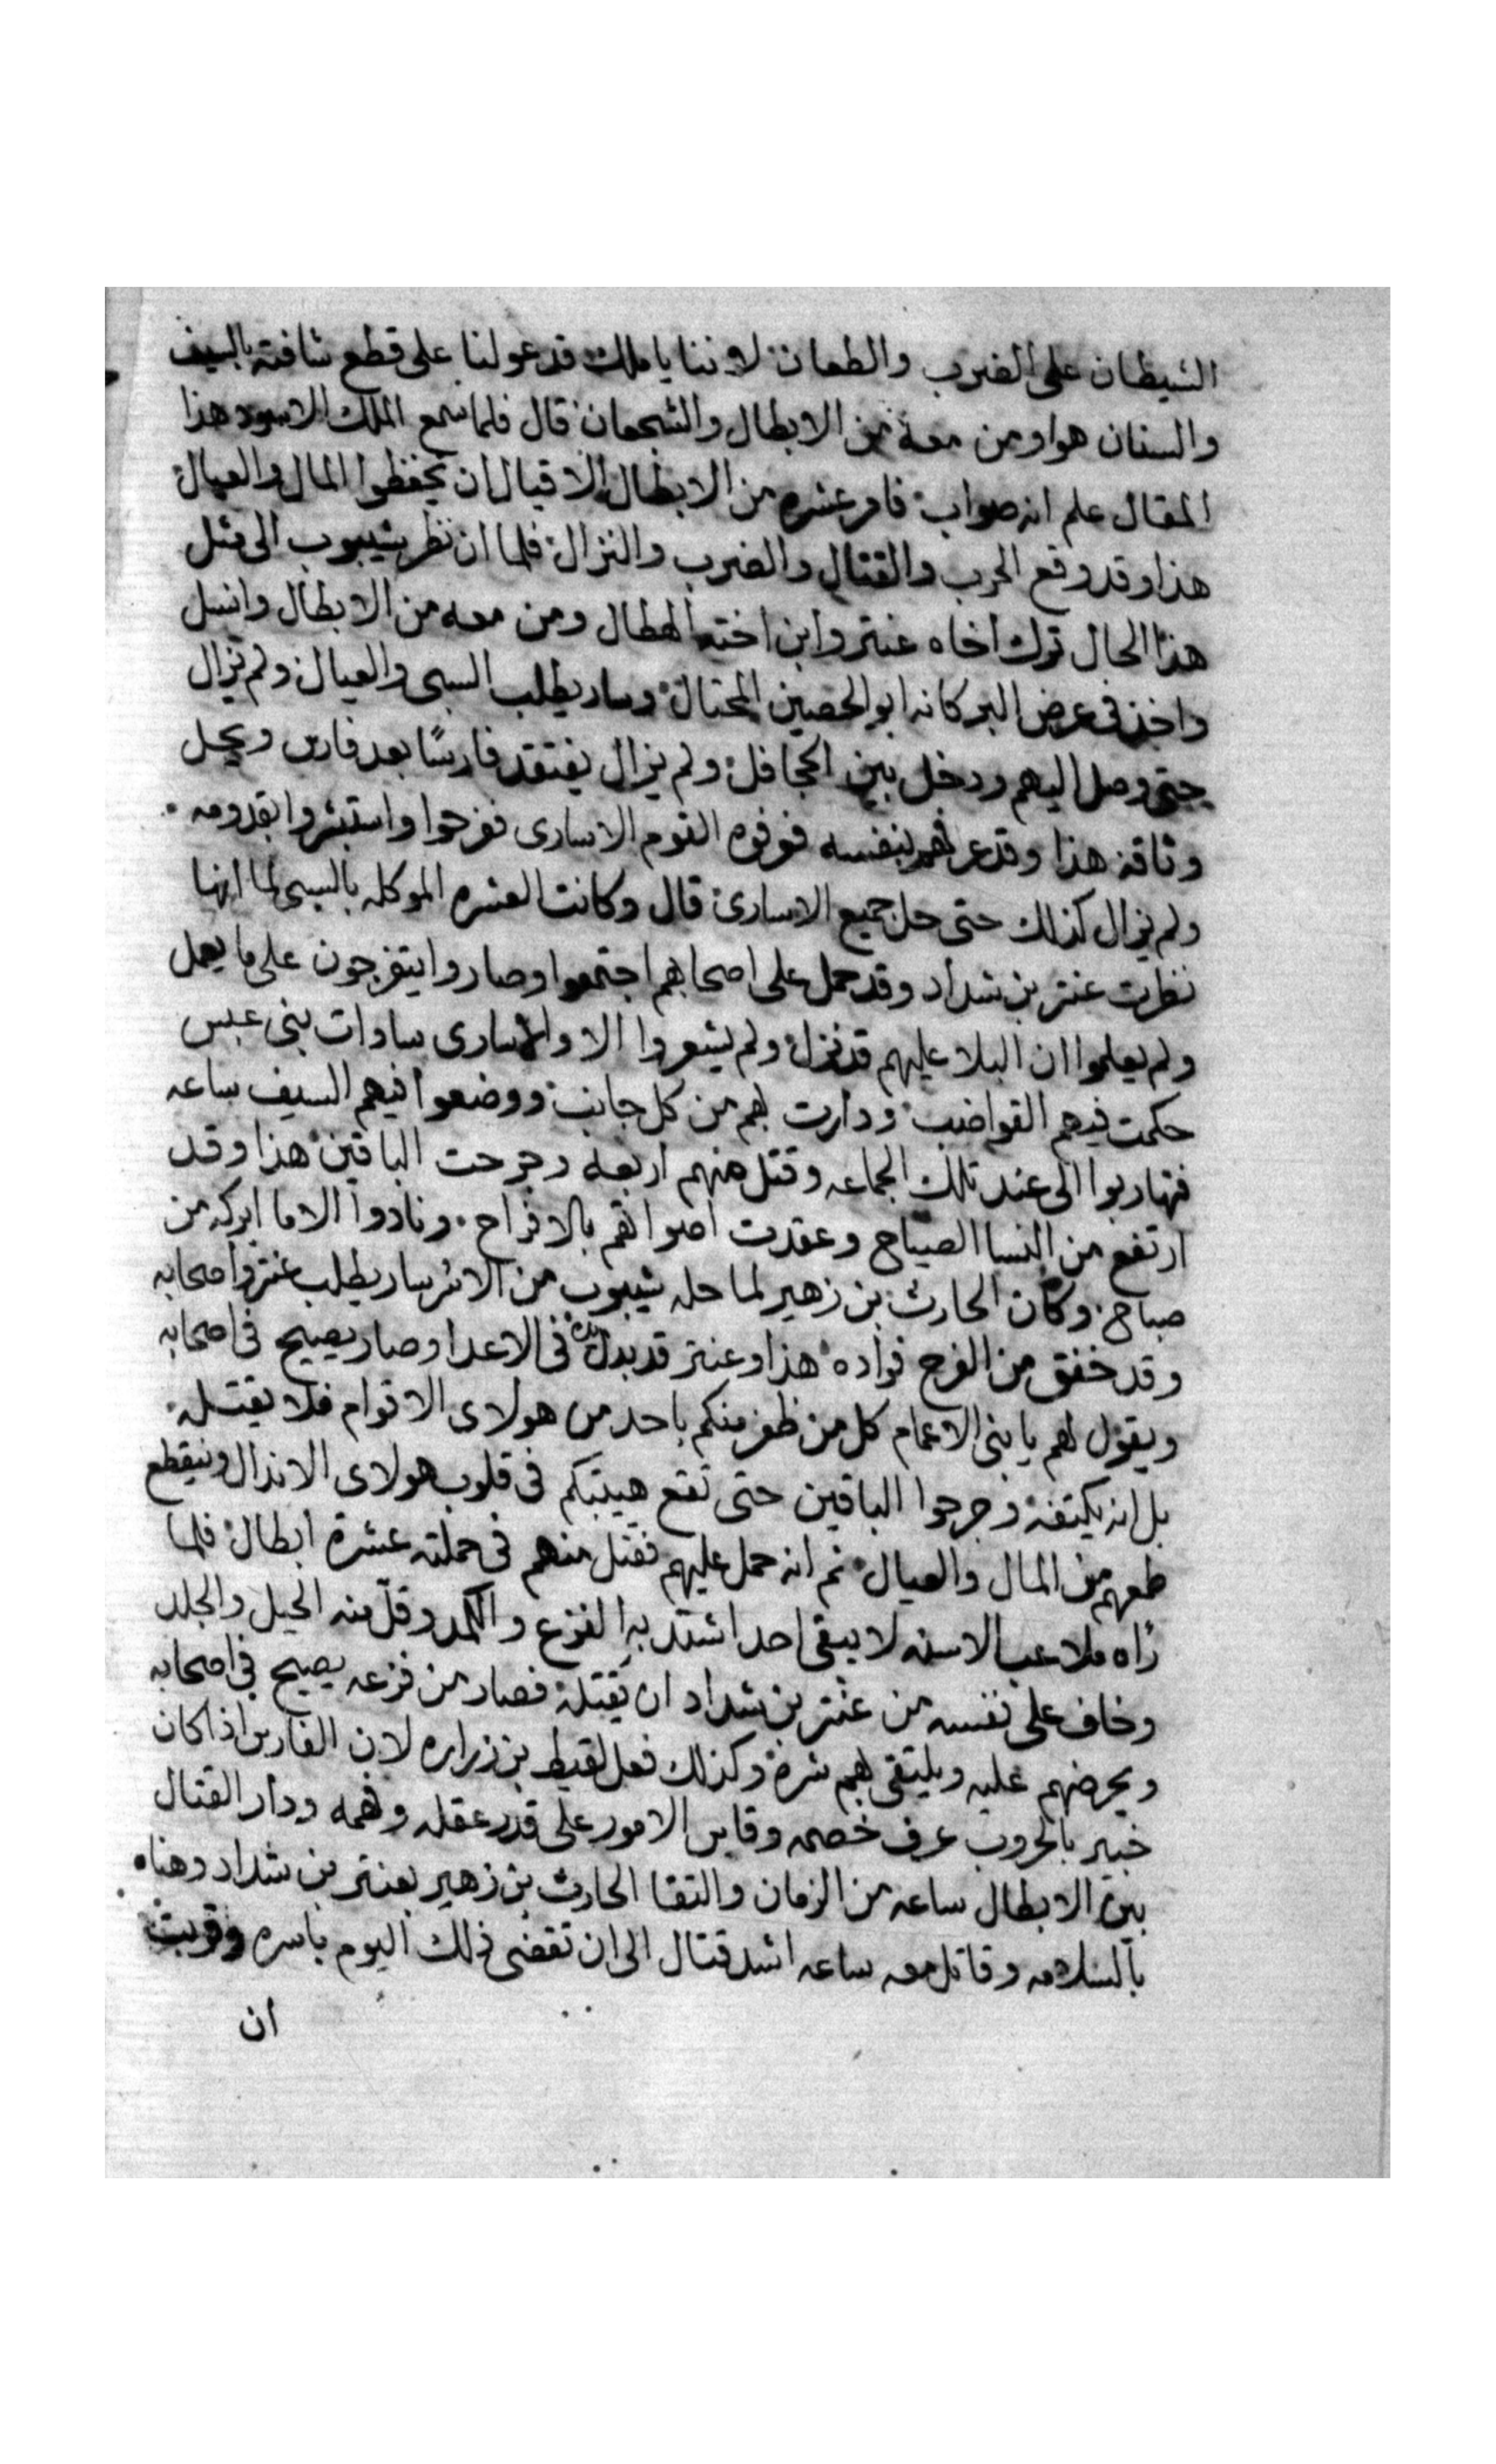 الشيطان على الضرب والطعان لاننا يا ملك قد عولنا على قطع شافته بالسيف
والسنان هوا ومن معه من الابطال والشجعان قال فلما سمع الملك الاسود هذا
المقال علم انه صواب فامر عشره من الابطال الاقيال ان يحفظوا المال والعيال
هذا وقد وقع الحرب والقتال والضرب والنزال فلما ان نظر شيبوب الى مثل
هذا الحال ترك اخاه عنتر وابن اخته الهطال ومن معه من الابطال وانسل
واخذ في عرض البر كانه ابو الحصين المحتال وسار يطلب السبى والعيال ولم يزال
حتى وصل اليهم ودخل بين الحجافل ولم يزال يفتقد فارسًا بعد فارس ويحل
وثاقه هذا وقد عرفهم بنفسه فوفوه القوم الاسارى ففرحوا واستبشروا بقدومه
ولم يزال كذلك حتى حل جميع الاسارى قال وكانت العشره الموكله بالسبى لما انها
نظرت عنتر بن شداد وقد حمل على اصحابهم اجتمعوا وصاروا يتفرجون على ما يعمل
ولم يعلموا ان البلا عليهم قد نزل ولم يشعروا الا والاسارى سادات بنى عبس
حكمت فيهم القواضب ودارت بهم من كل جانب ووضعوا فيهم السيف ساعه
فتهاربوا الى عند تلك الجماعه وقتل منهم اربعه وجرحت الباقين هذا وقد
ارتفع من النسا الصياح وعقدت اصواتهم بالافراح ونادوا الاما ابركه من
صباح وكان الحارث بن زهير لما حله شيبوب من الاسر سار يطلب عنتر واصحابه
وقد خفق من الفرح فواده هذا وعنتر قد بدل يده فى الاعدا وصار يصيح فى اصحابه
ويقول لهم يا بنى الاعمام كل من ظفر منكم باحد من هولاى الاقوام فلا يقتله
بل انه يكتفه وجرحوا الباقين حتى تقع هيبتكم فى قلوب هولاى الاندال وينقطع
طمعهم من المال والعيال ثم انه حمل عليهم فقتل منهم فى حملته عشرة ابطال فلما
راه ملاعب الاسنه لا يبقى احدا اشتد به الفزع والكمد وقلّ منه الحيل والجلد
وخاف على نفسه من عنتر بن شداد ان يقتله فصار من فزعه يصيح فى اصحابه
ويحرضهم عليه ويلتقى بهم شره وكذلك فعل لقيط بن زراره لان الفارس اذا كان
خبير بالحروب عرف خصمه وقاس الامور على قدر عقله وفهمه ودار القتال
بين الابطال ساعه من الزمان والتقا الحارث بن زهير بعنتر بن شداد وهناه
بالسلامه وقاتل معه ساعه اشد قتال الى ان تقضى ذلك اليوم باسره وقربت
ان